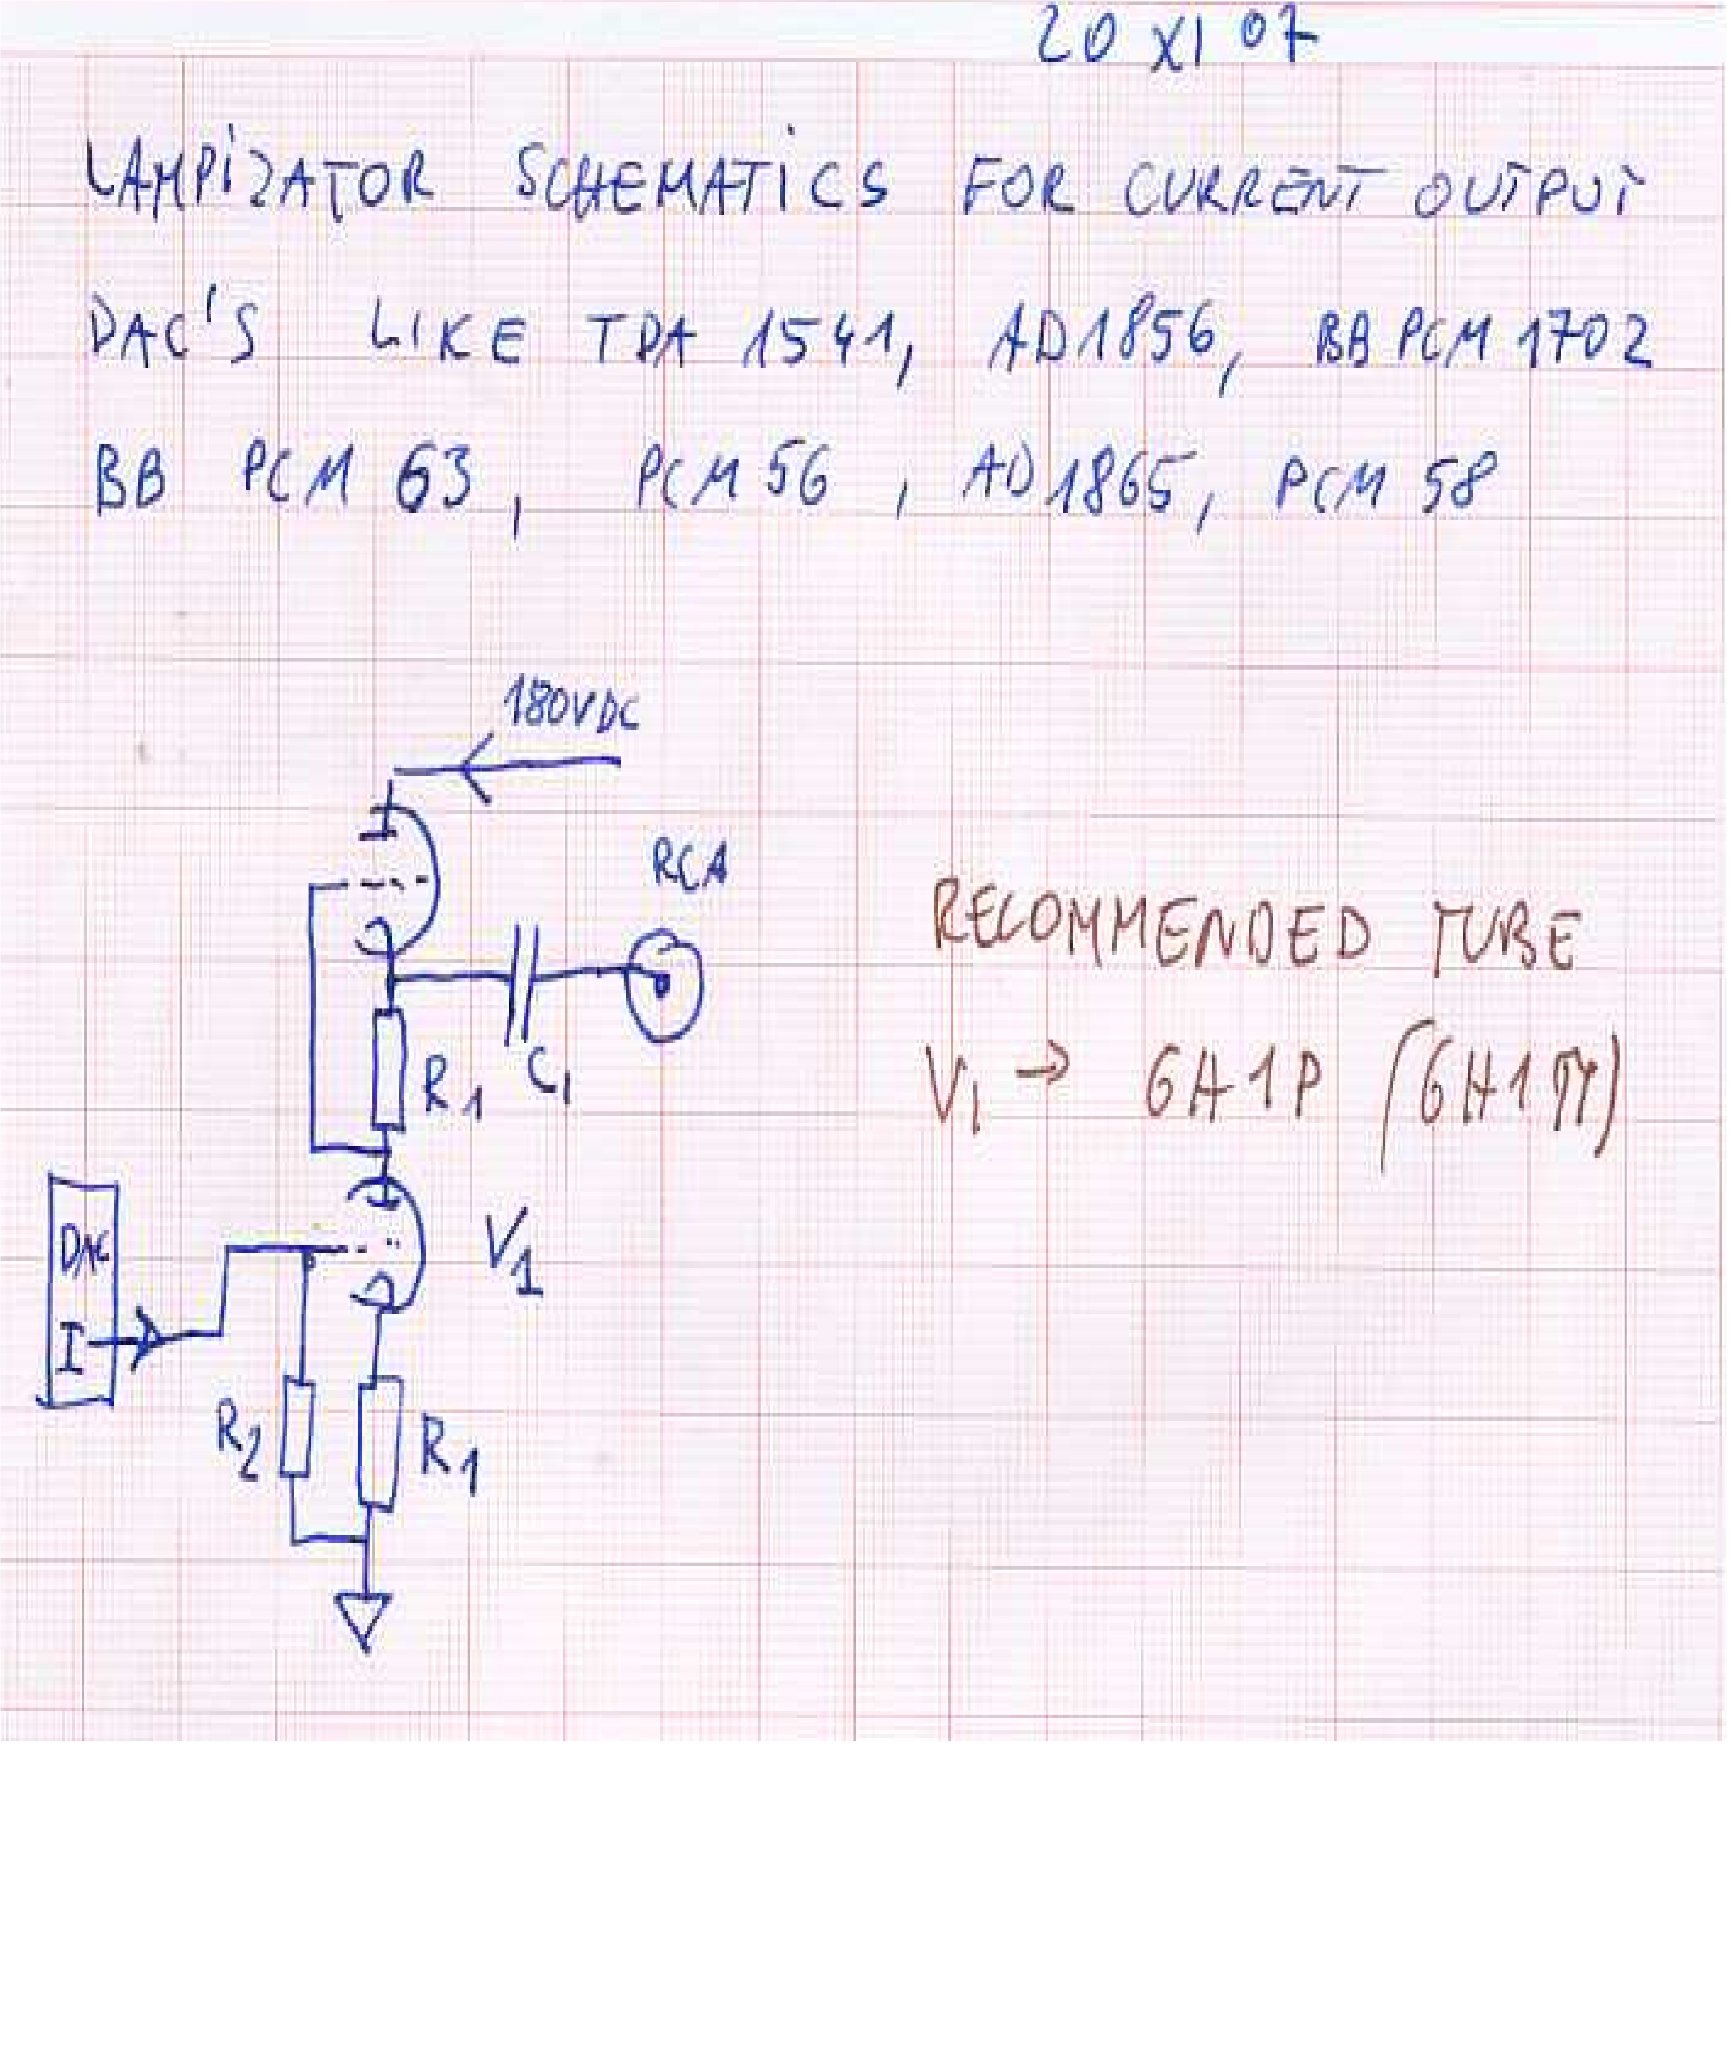 20 XI 07
LAMPiZATOR SCHEMATiCS FOR CURRENT OUTPUT
DAC'S LIKE TDA 1541, AD1856, BB PCM 1702
BB PCM 63, PCM 56, AD1865, PCM 58
180VDC
RCA
RECOMMENDED TUBE
R1
C1
V1 → 6H1P (6H1П)
DAC
V1
I
R2
R1